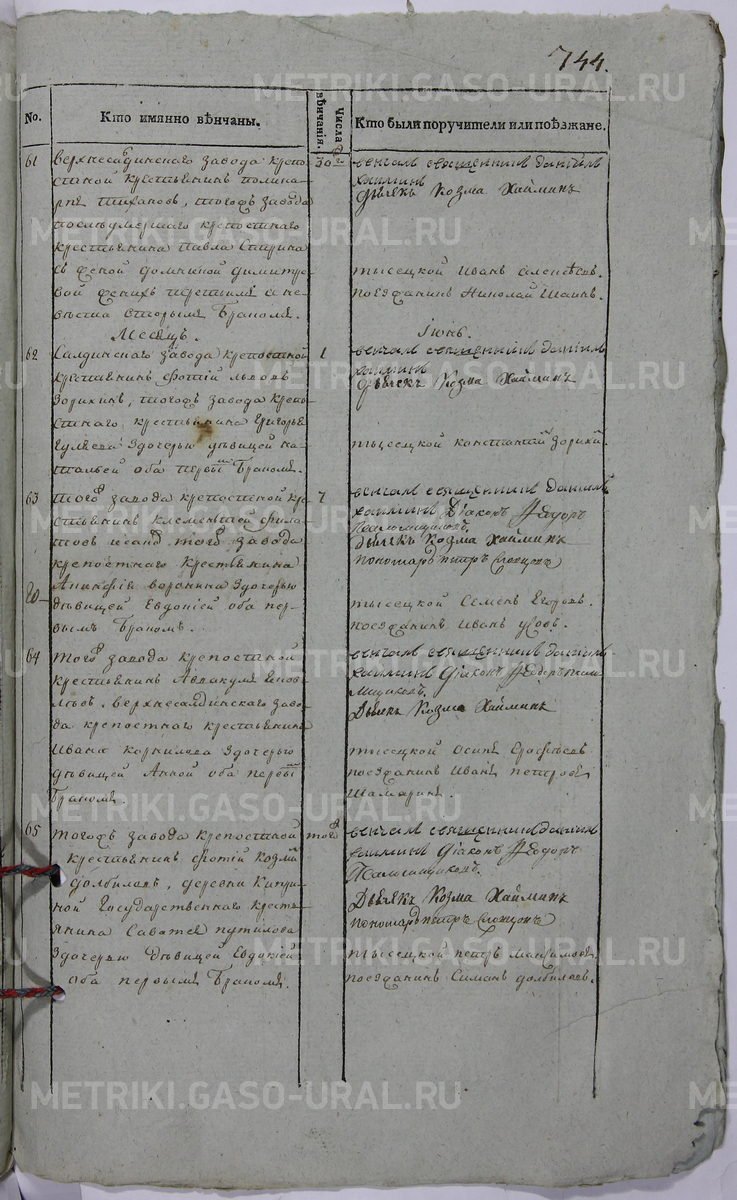 744.
No.
Кто имянно вѣнчаны.
Числа вѣнчанiя.
Кто были поручители или поѣзжане.
61
верхнесалдинского завода крепо-
стной крестьянинъ
тихановъ, тогожъ завода
послѣ умершаго крепостнаго
крестьянина Павла Спирина
съ женой домниной димитрѣ-
вой
вторымъ бракомъ.
30
венчалъ священникъ данiилъ
хаиминъ
Дьячкъ Козма Хайминъ
тысецкой Иванъ
поезжанинъ Николай
Месяцъ.
Iюнь.
62
Салдинскаго завода крепостной
крестьянинъ фотiй львовъ
Зорихинъ, тогожъ завода крепо-
стнаго крестьянина Григорья
Гуляева здочерью девицей на-
тальей оба первымъ бракомъ.
1
венчалъ священникъ данiилъ
хаиминъ
Дьячекъ Козма Хайминъ
тысецкой константинъ зорихи.
63
того завода крепостной кре-
стьянинъ клементей фила-
товъ тогожъ завода
крепостнаго крестьянина
воронина здочерью
девицей Евдокiей оба пер-
вымъ бракомъ.
7
венчалъ священникъ данiилъ
хаиминъ Дiаконъ Федоръ
Паломщиковъ.
Дьячекъ Козма Хайминъ
пономарь петръ Словцовъ
тысецкой Семенъ Егоровъ.
поезжанинъ Иванъ усовъ.
64
того завода крепостной
крестьянинъ Аввакумъ
верхнесалдинскаго заво-
да крепостнаго крестьянина
Ивана Корнилова здочерью
девицей Анной оба первымъ
бракомъ.
венчалъ священникъ данiилъ
хаиминъ Дiаконъ Федоръ пало-
мщиковъ.
Дьячекъ Козма Хайминъ
тысецкой Осипъ
поезжанинъ Иванъ петровъ
Шамаринъ.
65
тогожъ завода крепостной
крестьянинъ фотiй козми
долбиловъ, деревни
Государственнаго кресть-
янина Саватея путилова
здочерью девицей Евдокiей
оба первымъ бракомъ.
тогожъ
венчалъ священникъ данiилъ
хаиминъ Дiаконъ Федоръ
Паломщиковъ.
Дьячекъ Козма Хайминъ
пономарь петръ Словцовъ
тысецкой петръ максимовъ
поезжанинъ Симанъ долбиловъ.
METRIKI.GASO-URAL.RU